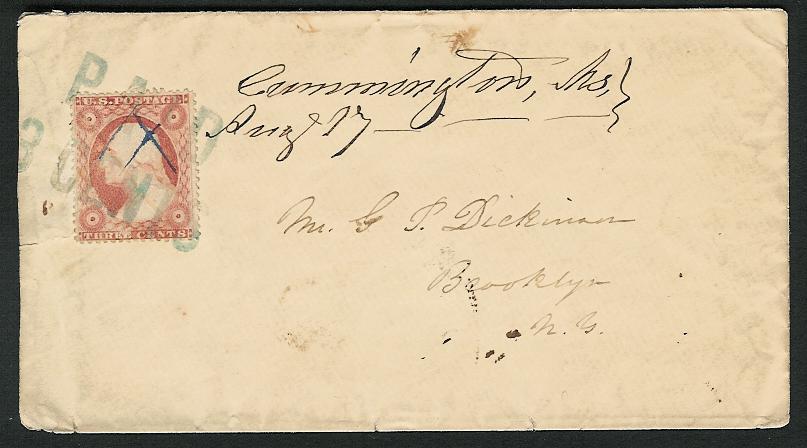 PAID
3 CENTS
U.S. POSTAGE
THREE CENTS
Cummington, Ms.
Augt 17
Mr. G P. Dickinson
Brooklyn
N. Y.